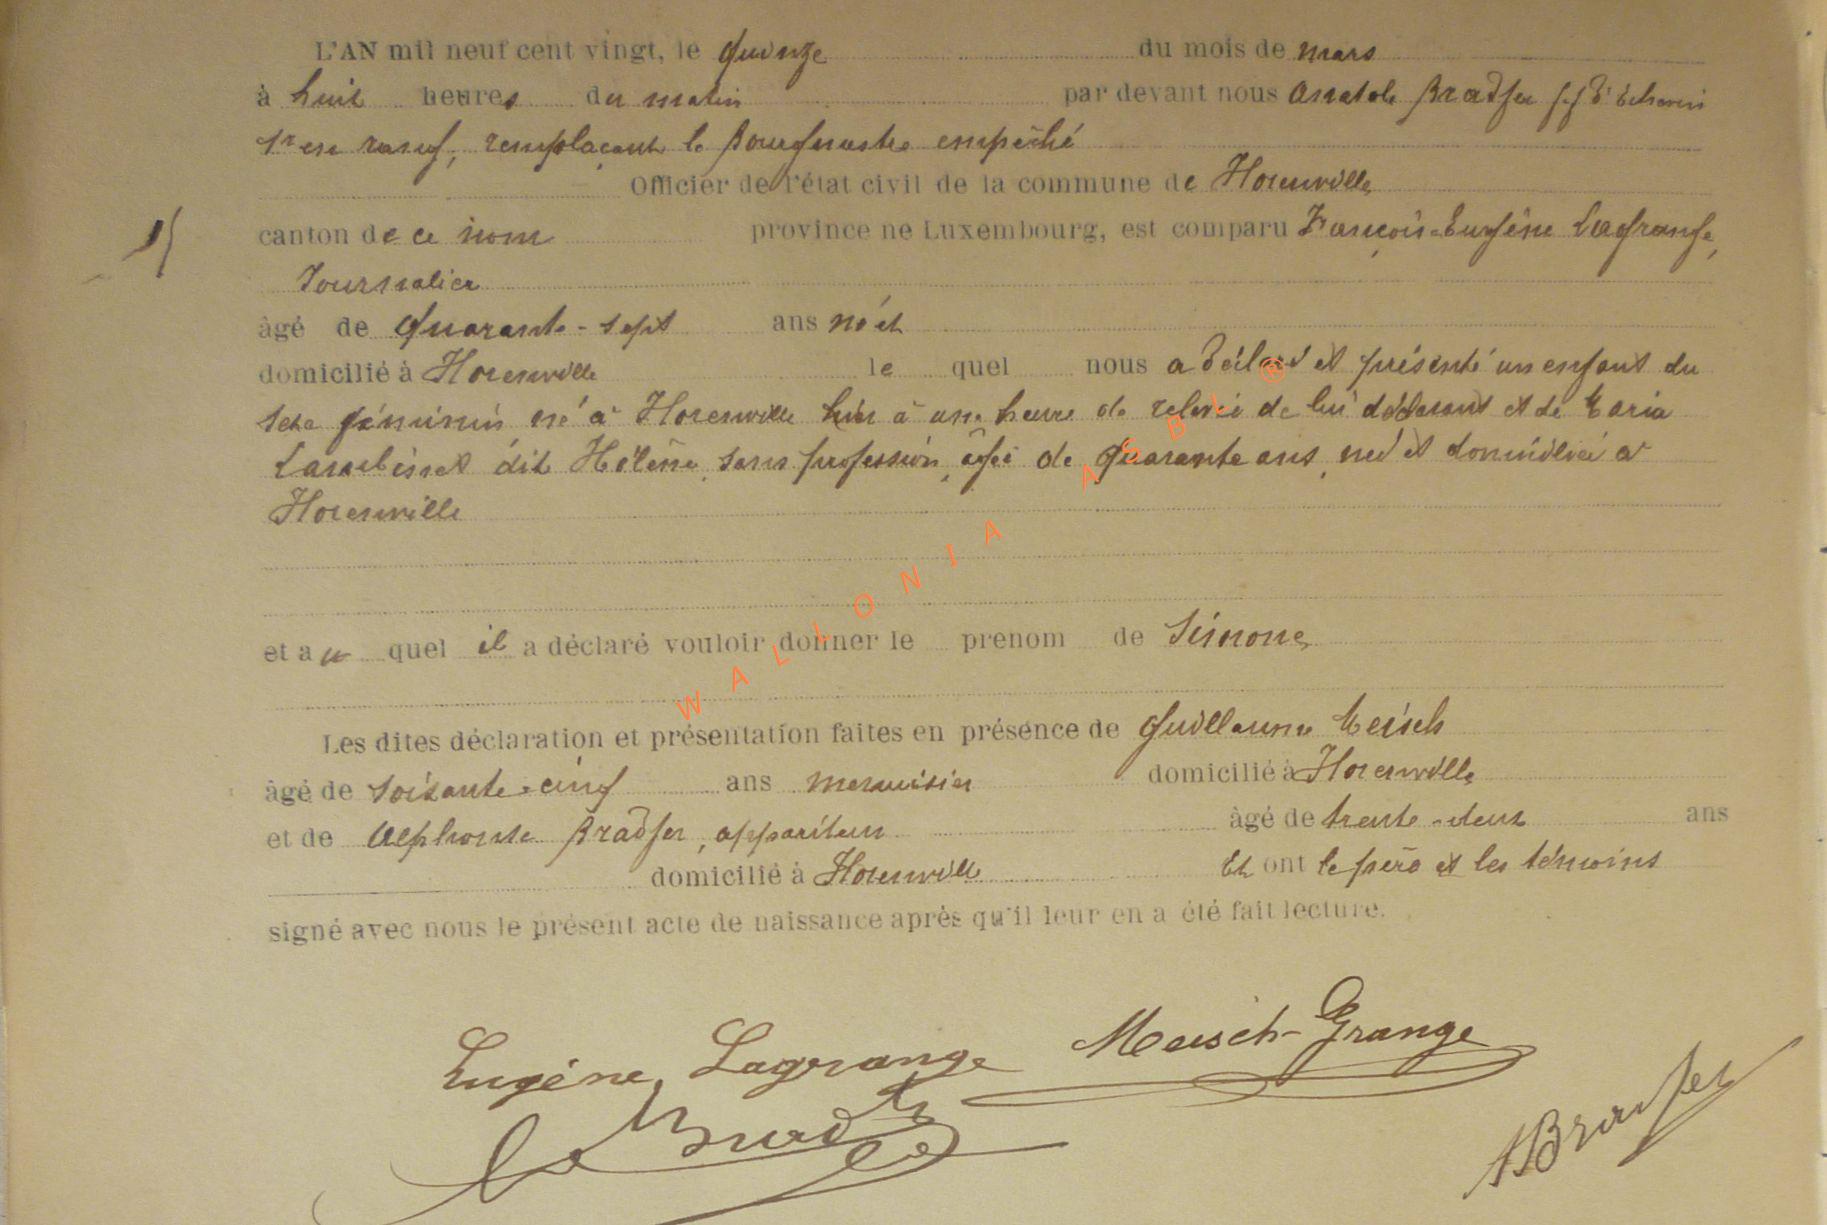 L'AN mil neuf cent vingt, le quinze du mois de mars
à huit heures du matin par devant nous Anatole Bradfer ff d'échevin
1r en rang, remplaçant le Bourgmestre empêché
Officier de l'état civil de la commune de Florenville
canton de ce nom province de Luxembourg, est comparu François-Eugène Lagrange,
15
Journalier
âgé de quarante-sept ans né et
domicilié à Florenville le quel nous a déclaré et présenté un enfant du
sexe féminin né à Florenville hier à une heure de relevée de lui déclarant et de Maria
dit Hélène, sans profession, âgée de quarante ans, née et domiciliée à
Florenville
et au quel il a déclaré vouloir donner le prenom de Simone
Les dites déclaration et présentation faites en présence de Guillaume Meisch
âgé de soixante-cinq ans menuisier domicilié à Florenville
et de Alphonse Bradfer, appariteur âgé de trente-deux ans
domicilié à Florenville Et ont le père et les témoins
signé avec nous le présent acte de naissance après qu'il leur en a été fait lecture.
Eugène Lagrange Meisch-Grange
Bradfer
ABradfer
WALLONIA ASBL ®